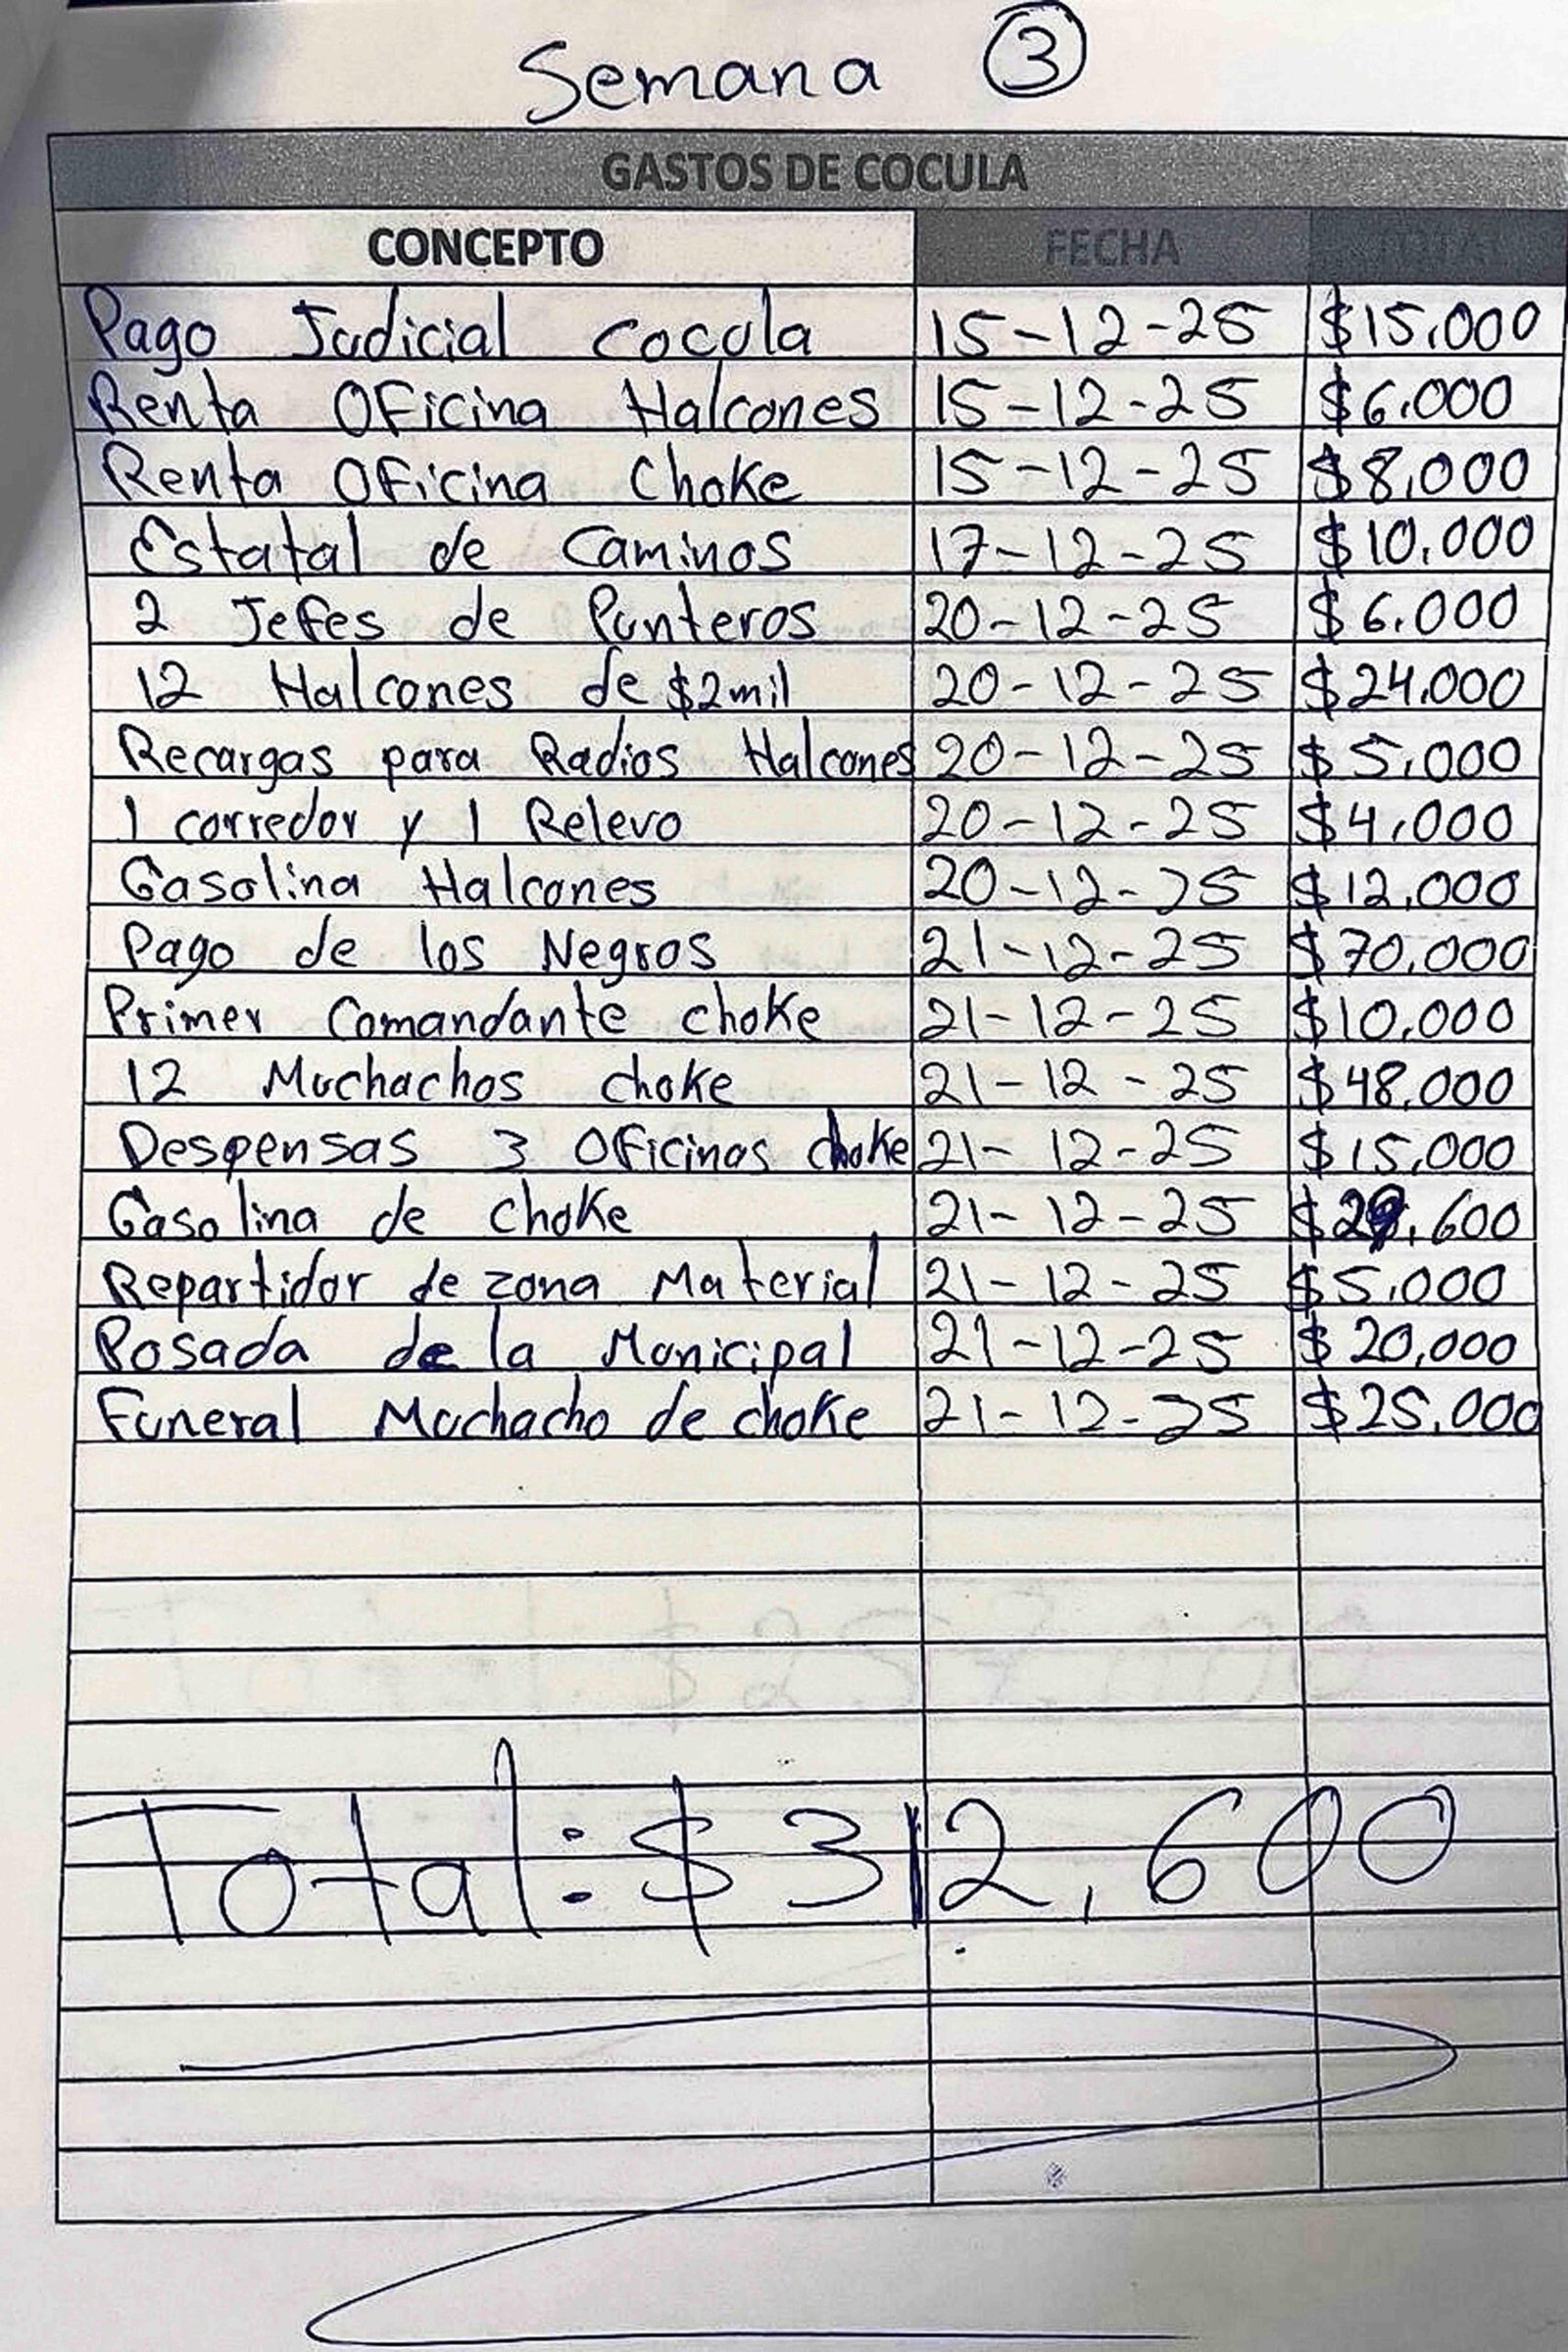 Semana ③
GASTOS DE COCULA
CONCEPTO FECHA TOTAL
Pago Judicial Cocula 15-12-25 $15,000
Renta Oficina Halcones 15-12-25 $6,000
Renta Oficina Choke 15-12-25 $8,000
Estatal de Caminos 17-12-25 $10,000
2 Jefes de Punteros 20-12-25 $6,000
12 Halcones de $2mil 20-12-25 $24,000
Recargas para Radios Halcones 20-12-25 $5,000
1 corredor y 1 Relevo 20-12-25 $4,000
Gasolina Halcones 20-12-25 $12,000
Pago de los Negros 21-12-25 $70,000
Primer Comandante choke 21-12-25 $10,000
12 Muchachos choke 21-12-25 $48,000
Despensas 3 Oficinas choke 21-12-25 $15,000
Gasolina de choke 21-12-25 $29,600
Repartidor de zona Material 21-12-25 $5,000
Posada de la Municipal 21-12-25 $20,000
Funeral Muchacho de choke 21-12-25 $25,000
Total: $312,600